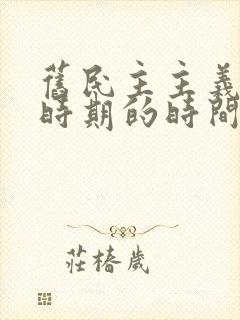 舊民主主義
時期的時間
莊椿歲